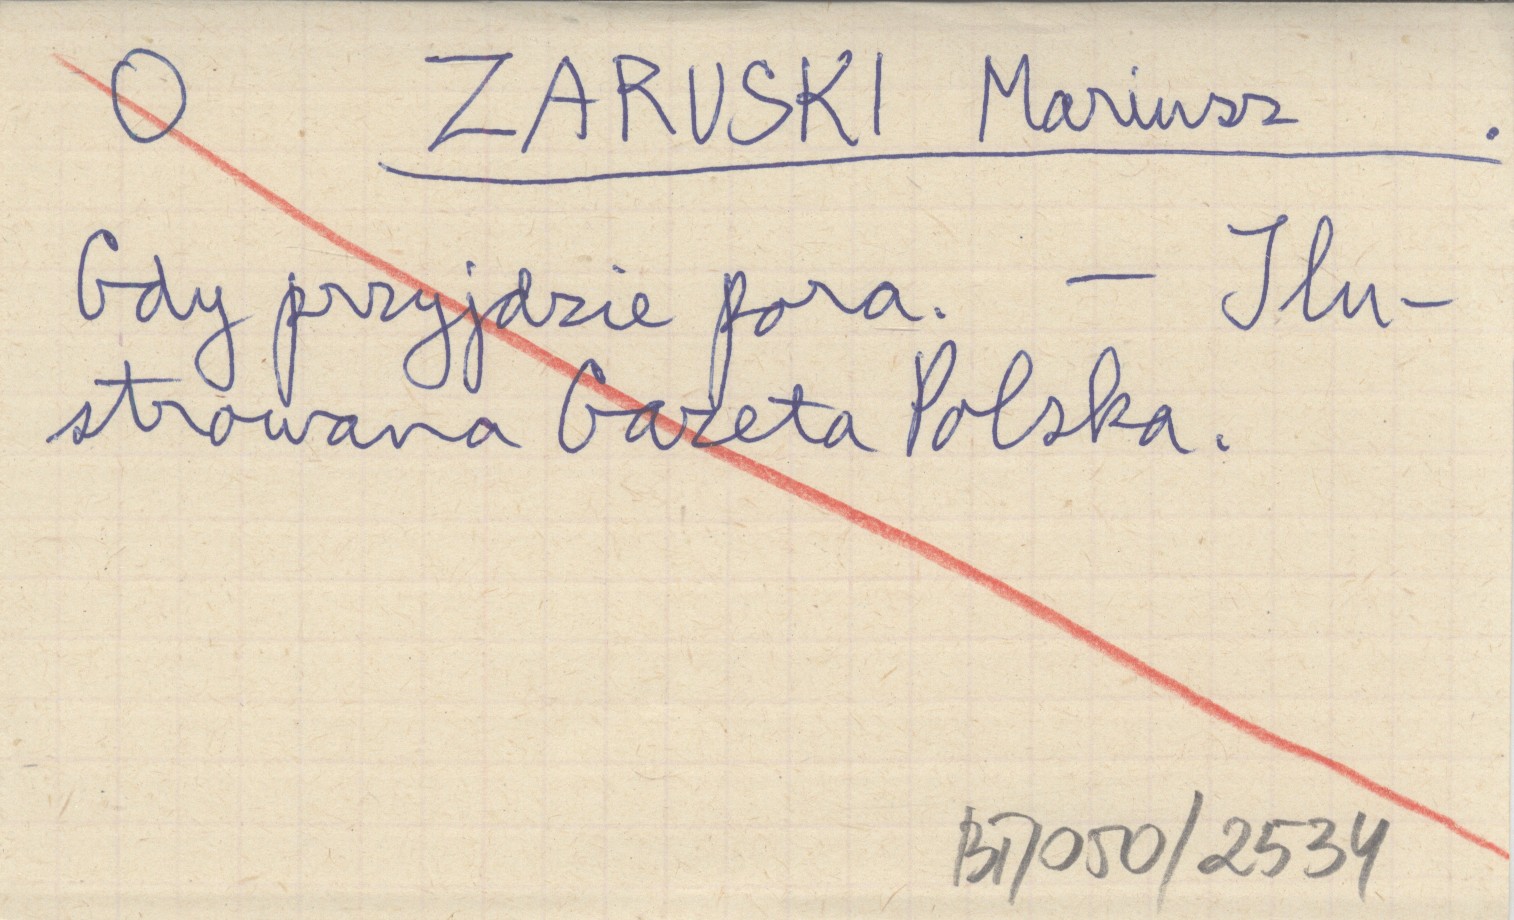 O ZARUSKI Mariusz .
Gdy przyjdzie pora. — Ilu-
strowana Gazeta Polska.
BT/050/2534